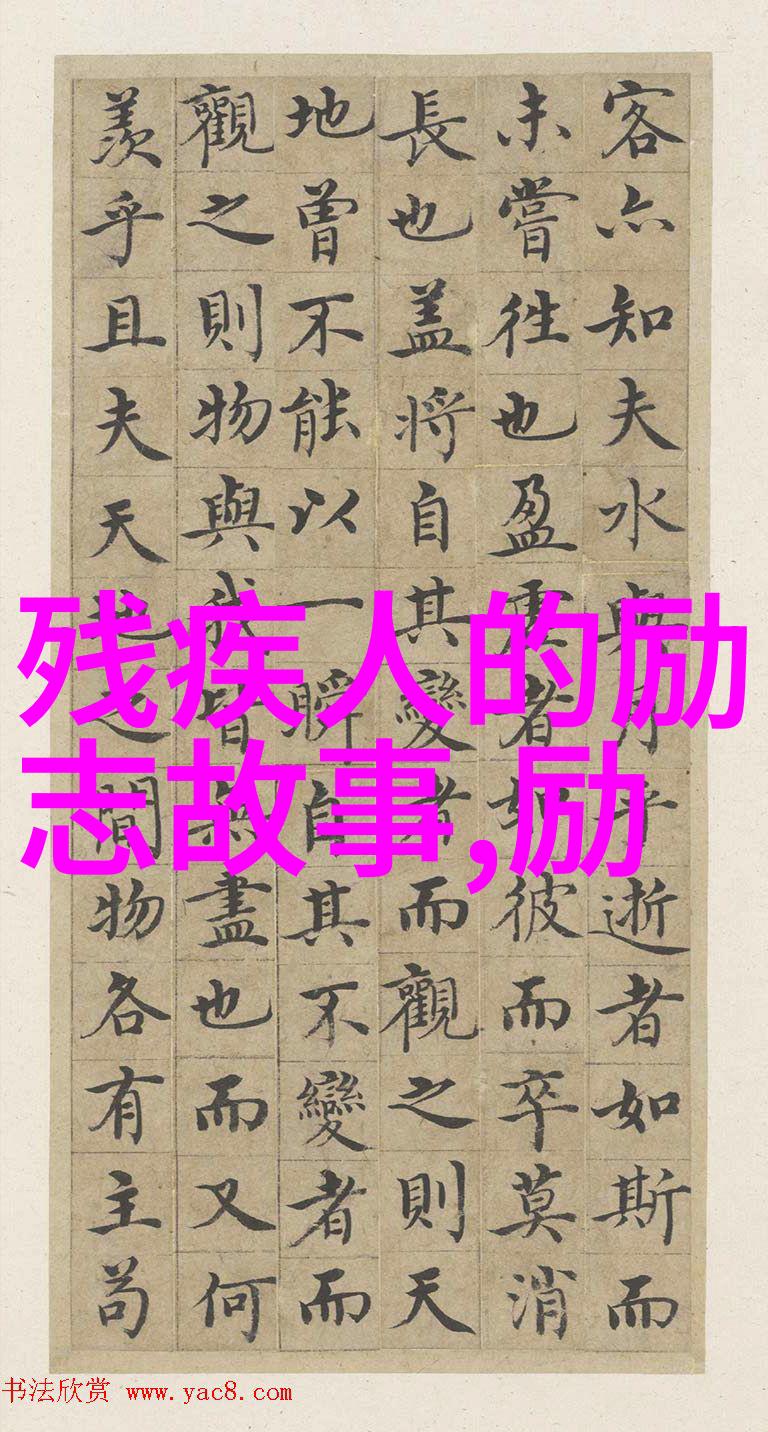 客亦知夫水與月乎逝者如斯而
未嘗往也盈虛者如彼而卒莫消
長也盖將自其變者而觀之則天
地曾不能以一瞬自其不變者而
觀之則物與我皆無盡也而又何
羨乎且夫天地之間物各有主苟
残疾人的励
志故事,励
书法欣赏 www.yac8.com